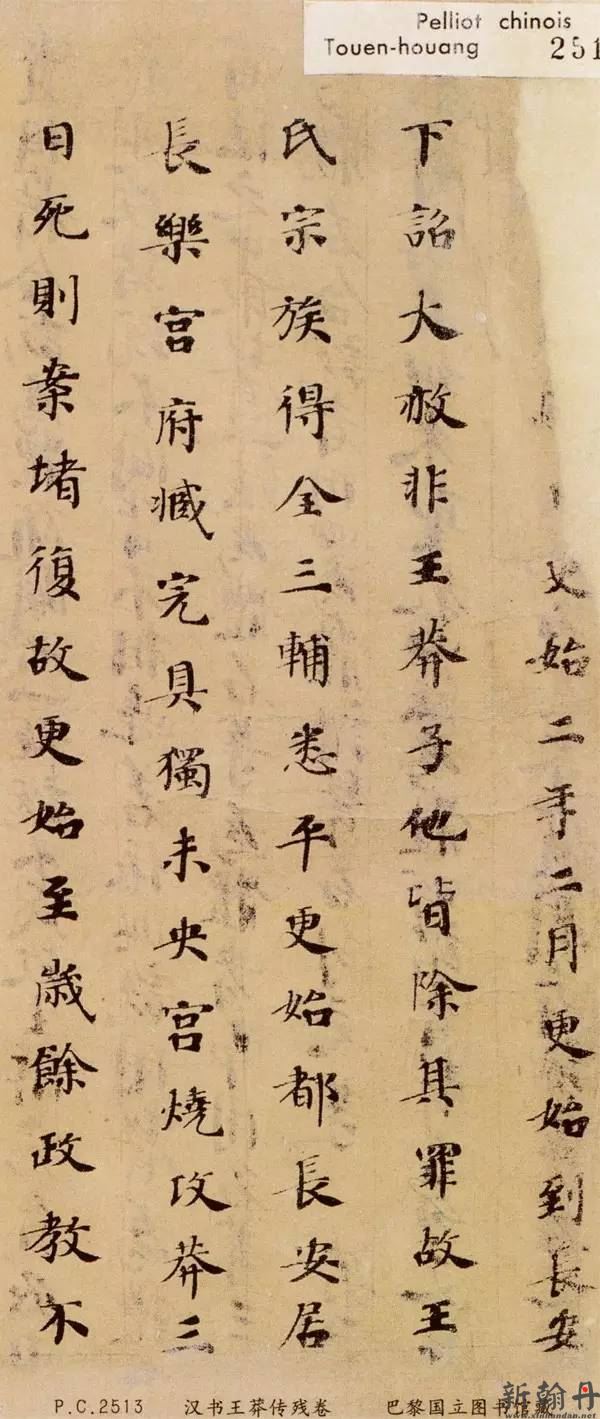 Pelliot chinois
Touen-houang 251
始二年二月更始到長安
下詔大赦非王莽子他皆除其罪故王
氏宗族得全三輔悉平更始都長安居
長樂宮府臧完具獨未央宮燒攻莽三
日死則案堵復故更始至歲餘政教不
P.C.2513 汉书王莽传残卷 巴黎国立图书馆藏
新翰丹